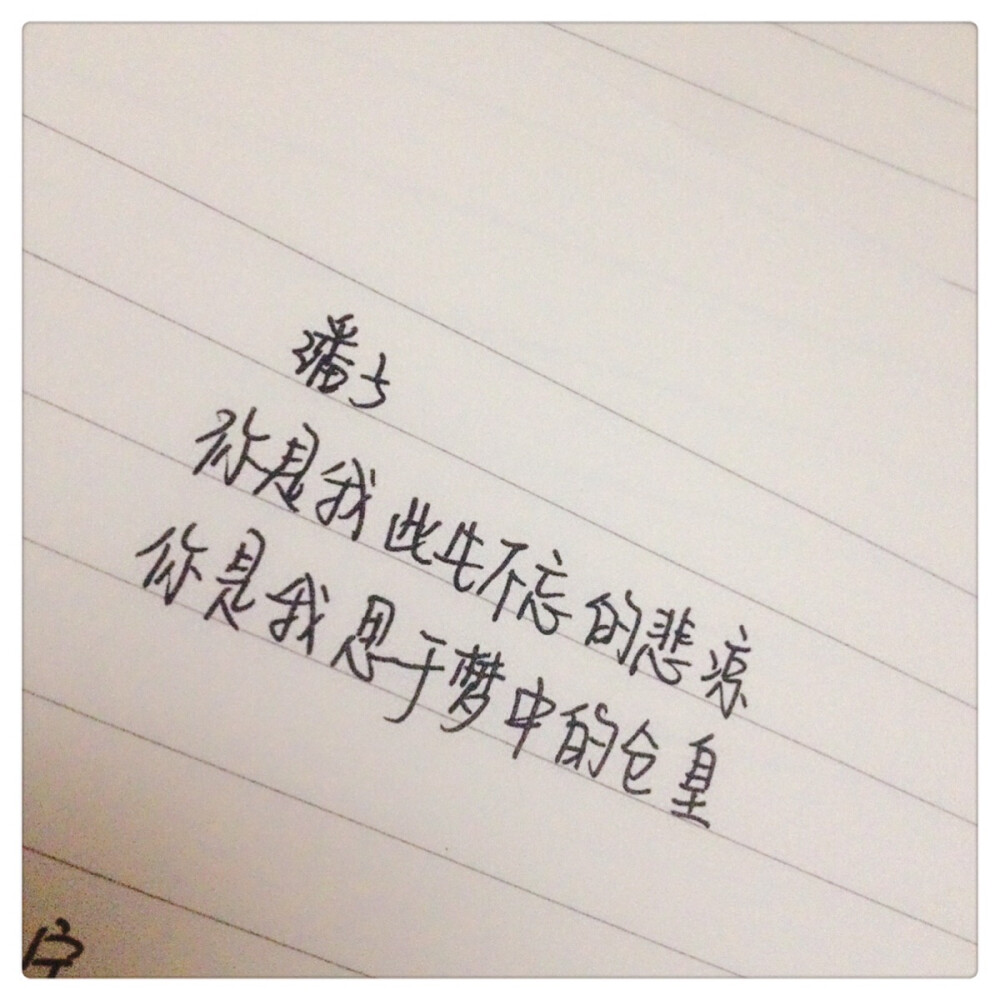 潘占
你是我此生不忘的悲凉
你是我思于梦中的仓皇